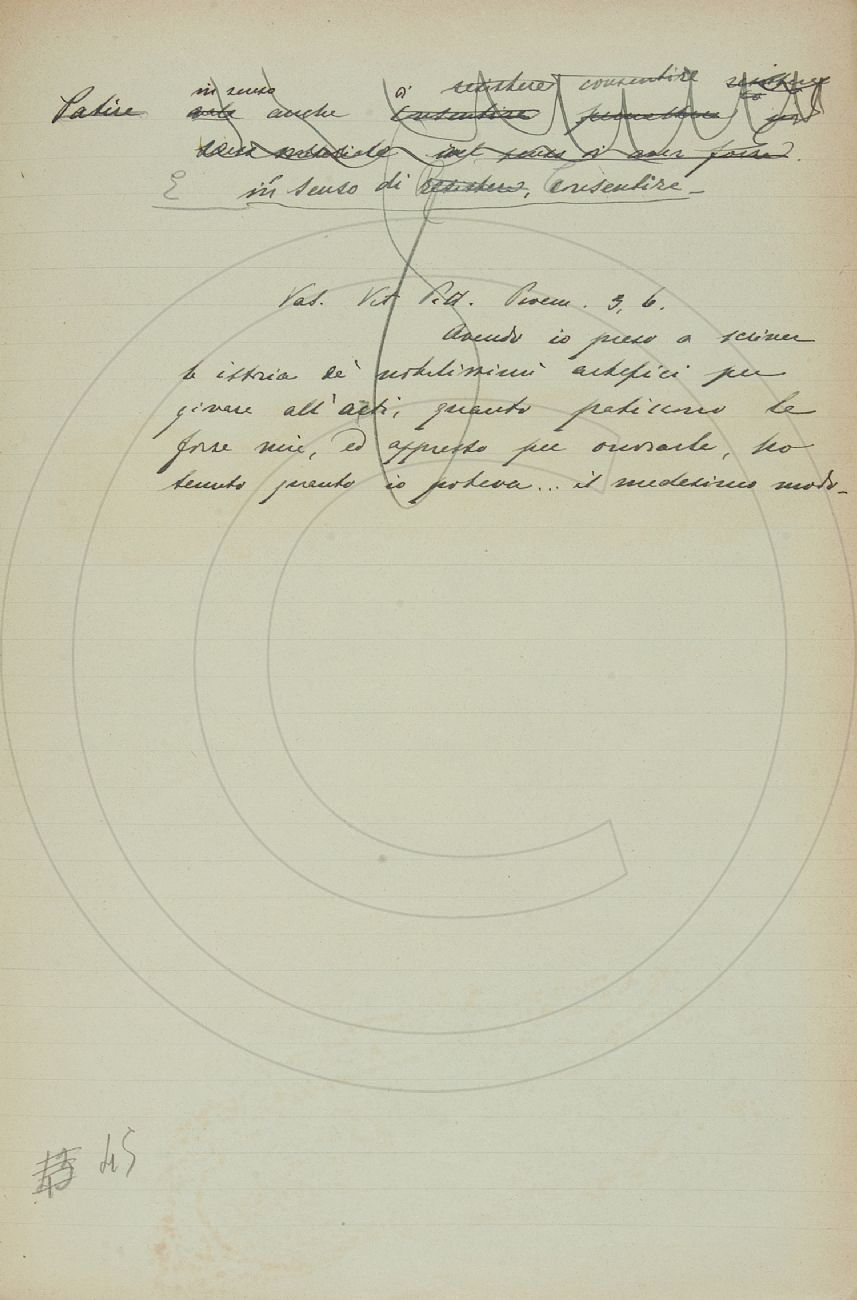 in senso di resistere consentire
Patire anche consentire permettere
nel senso di aver forza.
E in senso di resistere, Consentire_
Vas. Vit. Pitt. Proem. 3, 6.
Avendo io preso a scriver
la istoria de' nobilissimi artefici per
giovare all'arti, quanto patiscono le
forze mie, ed appresso per onorarle, ho
tenuto quanto io poteva... il medesimo modo_
45